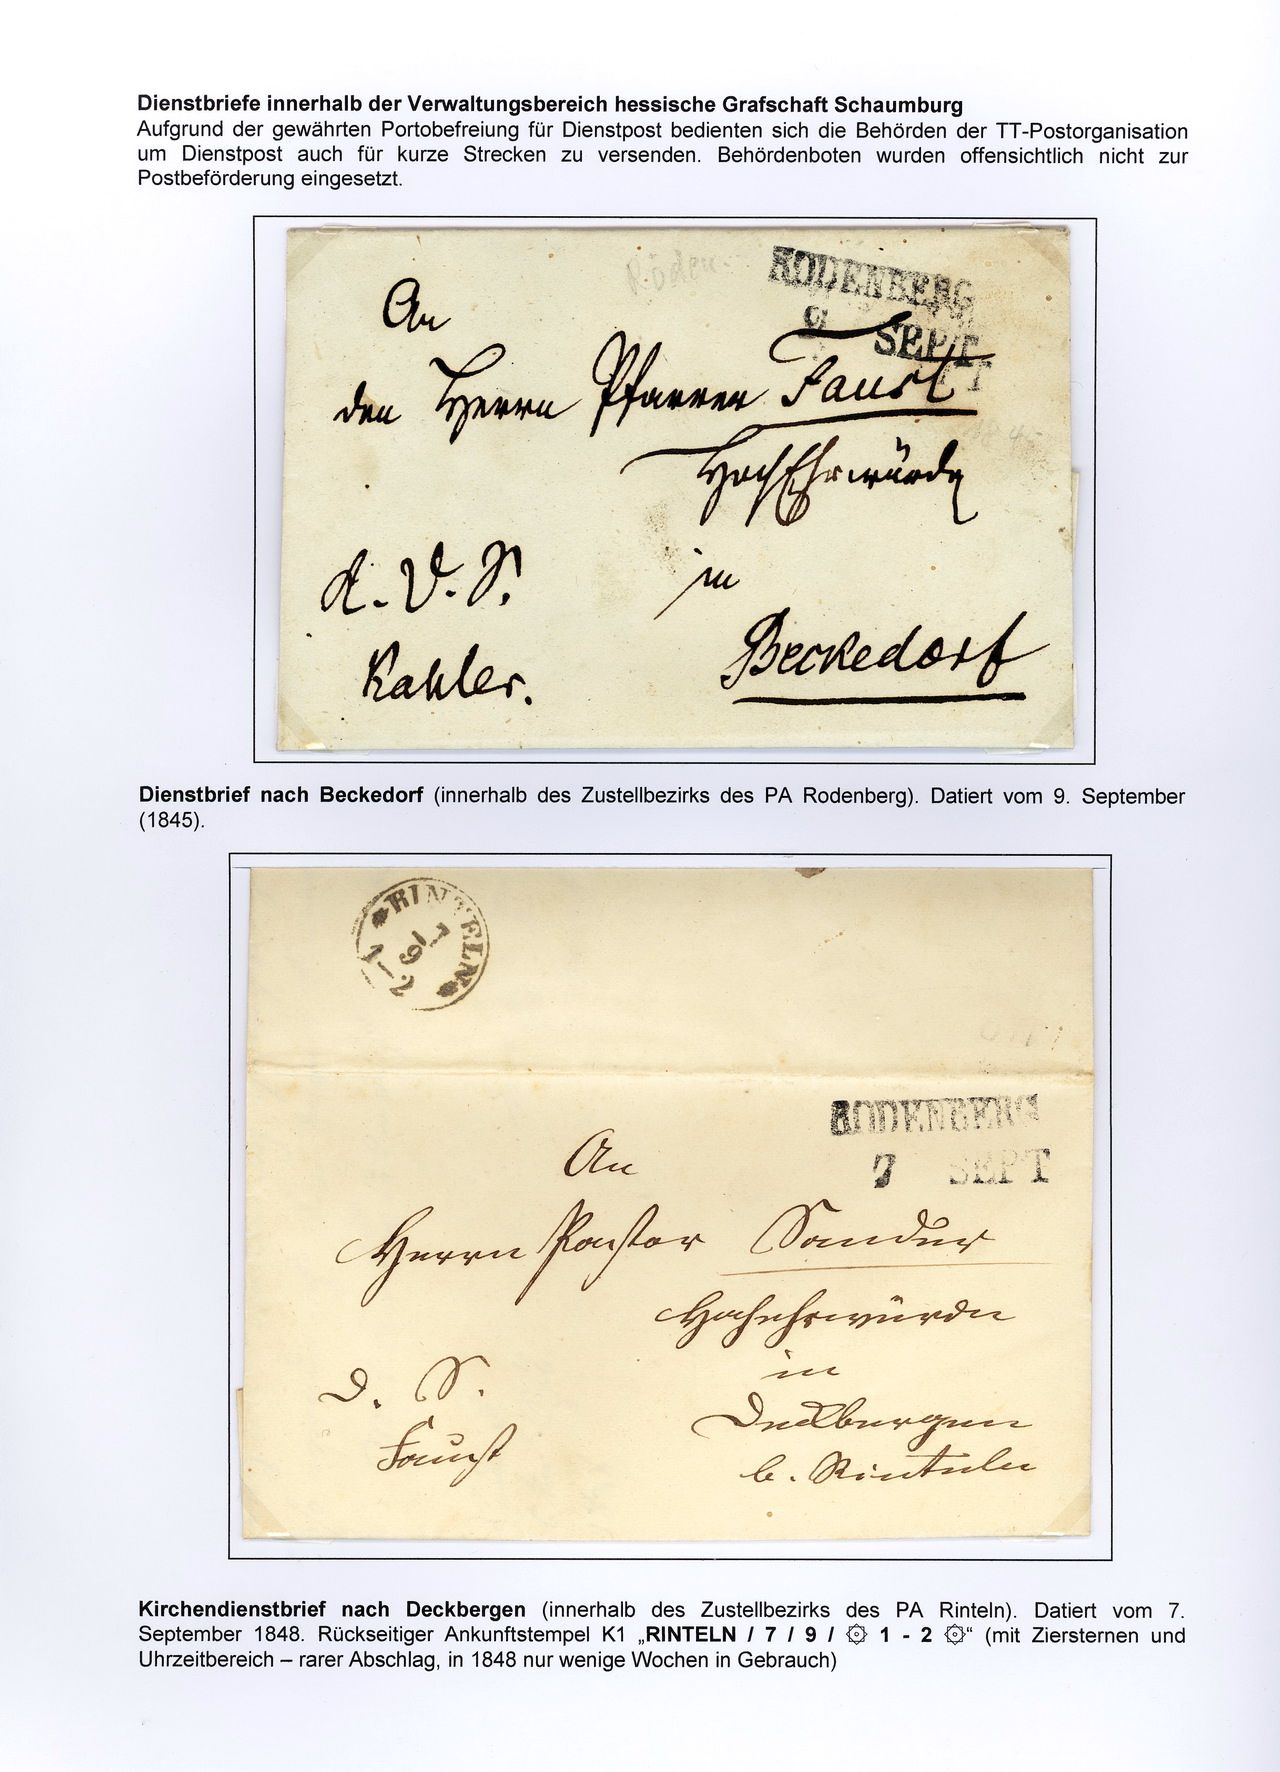 Dienstbriefe innerhalb der Verwaltungsbereich hessische Grafschaft Schaumburg
Aufgrund der gewährten Portobefreiung für Dienstpost bedienten sich die Behörden der TT-Postorganisation
um Dienstpost auch für kurze Strecken zu versenden. Behördenboten wurden offensichtlich nicht zur
Postbeförderung eingesetzt.
Röden-
RODENBERG
9 SEPT
An
den Herrn Pfarrer Faust
HochEhrwürden
K. V. S.
in
Kahler.
Beckedorf
Dienstbrief nach Beckedorf (innerhalb des Zustellbezirks des PA Rodenberg). Datiert vom 9. September
(1845).
*RINTELN*
7/9
1-2
RODENBERG
7 SEPT
An
Herrn Pastor Sander
Hochehrwürden
in
D. S.
Deckbergen
Faust
b. Rinteln
Kirchendienstbrief nach Deckbergen (innerhalb des Zustellbezirks des PA Rinteln). Datiert vom 7.
September 1848. Rückseitiger Ankunftstempel K1 „RINTELN / 7 / 9 / ۞ 1 - 2 ۞“ (mit Ziersternen und
Uhrzeitbereich – rarer Abschlag, in 1848 nur wenige Wochen in Gebrauch)